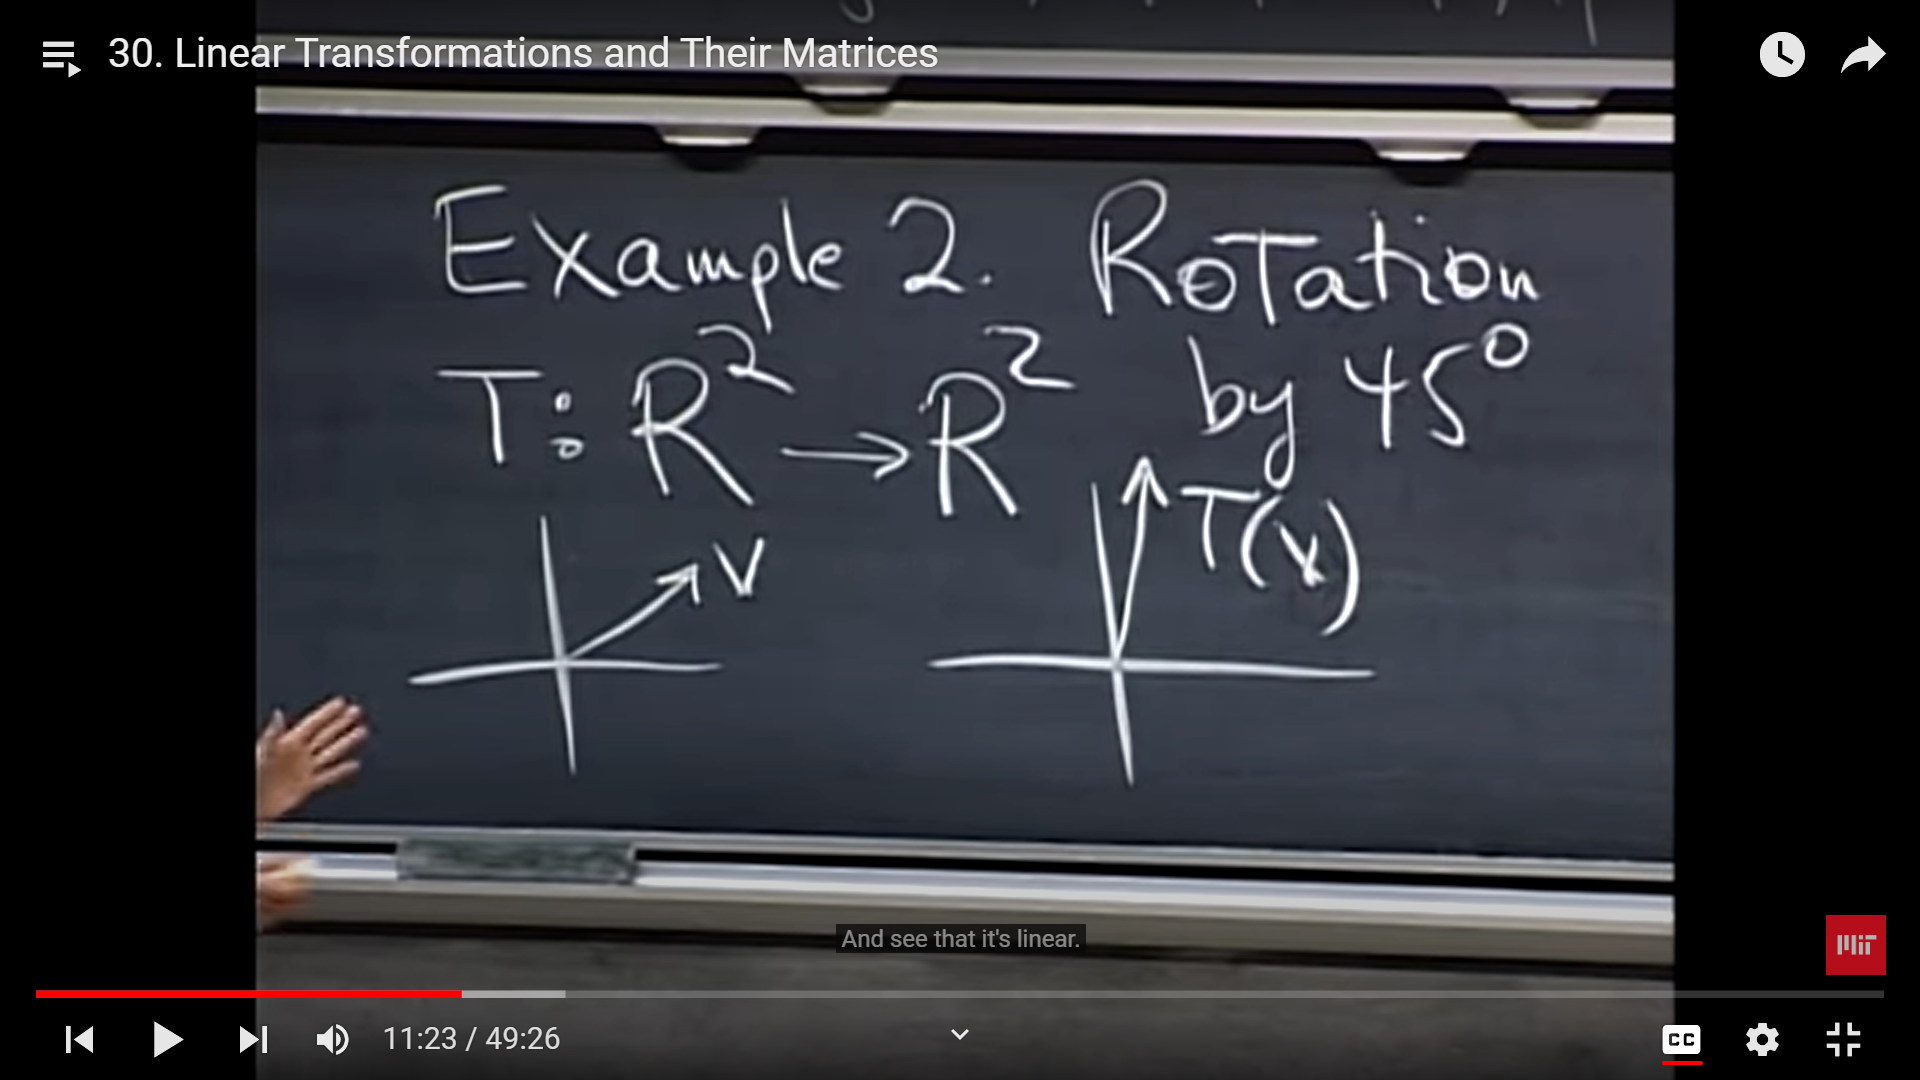 30. Linear Transformations and Their Matrices
Example 2. Rotation
by 45°
T: R² → R²
V
T(v)
And see that it's linear.
MIT
11:23 / 49:26
CC